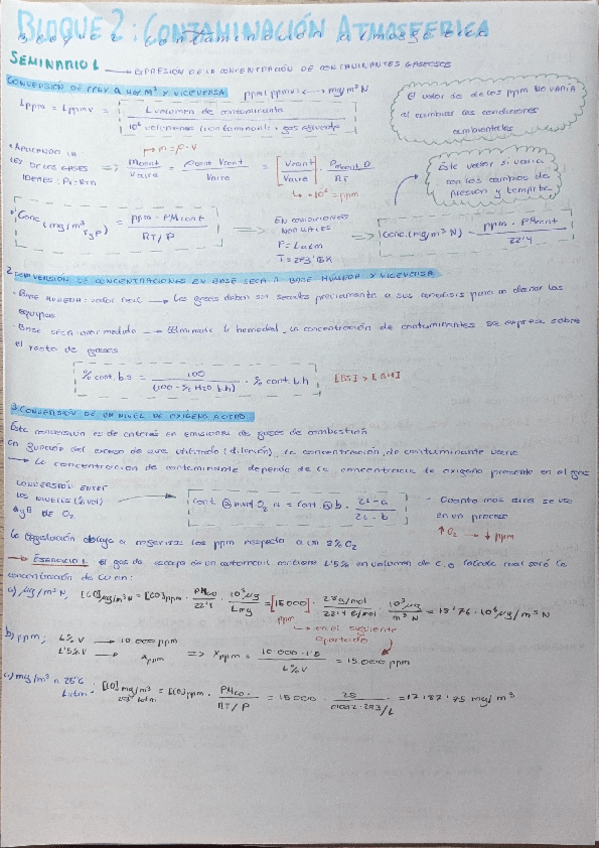 BLOQUE 2: CONTAMINACIÓN ATMOSFERICA
SEMINARIO 1 → EXPRESIÓN DE LA CONCENTRACIÓN DE CONTAMINANTES GASEOSOS
CONVERSIÓN DE PPMV A MG/M³ Y VICEVERSA ppm (ppmv) ↔ mg/m³N
1 ppm = 1 ppmv = 1 volumen de contaminante / 10⁶ volumenes (contaminante + gas
El valor de los ppm NO VARÍA
al cambiar las condiciones
ambientales
• Aplicando la
LEY DE LOS GASES
IDEALES:
m = ρ·V
⇒ mcont / Vaire = ρcont Vcont / Vaire = [Vcont / Vaire] ·
RT
→ ·10⁶ = ppm
Este valor si varia
con los cambios de
presión y
• Conc (mg/m³ TyP) = ppm · PMcont / RT/P
EN CONDICIONES
NORMALES
P = 1 atm
T = 273
⇒ Conc. (mg/m³ N) = ppm · PMcont / 22'4
2. CONVERSIÓN DE CONCENTRACIONES EN BASE SECA A BASE HÚMEDA Y VICEVERSA
· Base HUMEDA: valor real → Los gases deben ser secados previamente a sus analisis para no dañar los
equipos
· Base seca: valor medido → Eliminada la humedad, la concentración de contaminantes se expresa sobre
el resto de gases
% cont. b.s = 100 / (100 - % H2O b.h) · % cont. b.h [BS] > [BH]
3. CONVERSIÓN DE UN NIVEL DE OXÍGENO A OTRO
Esta conversión es de interés en emisiones de gases de combustión
En función del exceso de aire utilizado (dilución), la concentración de contaminante varía
→ La concentración de contaminante depende de la concentración de oxígeno presente en el gas
CONVERSIÓN ENTRE
LOS NIVELES (%vol)
A y B DE O2
21-a / 21-b
- Cuanto más aire se use
en un proceso
↑O2 → ↓ppm
La legislación obliga a
los ppm respecto a un 3% O2
→ EJERCICIO 1: El gas de escape de un automovil contiene 1'5% en volumen de C.O. Calcule cual será la
concentración de CO en:
a) μg/m³N; [CO]μg/m³N = [CO]ppm · PMCO / 22'4 · 10³μg / 1mg = [15000] · 28g/mol / 22'4 l/mol · 10³μg / m³N = 18'76·10⁶μg/m³N
ppm → en el siguiente
apartado
b) ppm; 1% V → 10.000 ppm
1'5% V → x ppm ⇒ Xppm = 10.000·1'5 / 1% V = 15.000 ppm
c) mg/m³ a 25ºC
1 atm · [CO] mg/m³ = [CO]ppm · PMCO. / RT/P = 15000 · 28 / = 17.187'75 mg/m³